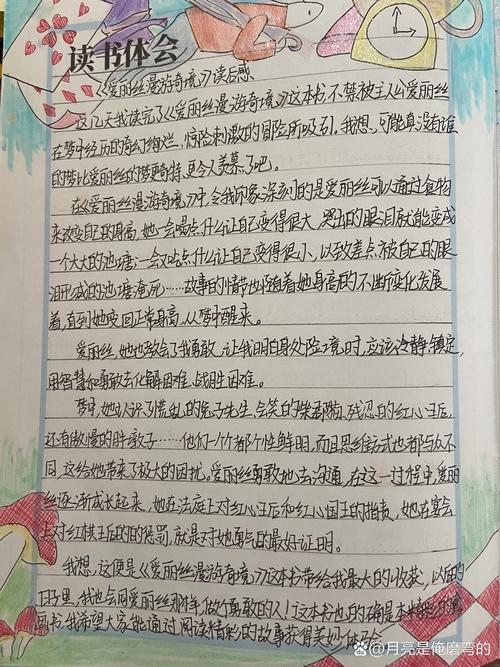 读书体会
《爱丽丝漫游奇境》读后感
这几天我读完了《爱丽丝漫游奇境》这本书，不禁被主人公爱丽丝
在梦中经历的奇幻绚烂、惊险刺激的冒险所吸引。我想，可能真没有谁
的梦比爱丽丝的梦更奇特、更令人羡慕了吧。
在《爱丽丝漫游奇境》中，令我印象深刻的是爱丽丝可以通过食物
来改变自己的身高，她一会喝点什么让自己变得很大，哭出的眼泪就能变成
一个大大的池塘；一会又吃点什么让自己变得很小，以致差点被自己的眼
泪形成的池塘淹死……故事的情节也随着她身高的不断变化发展
着，直到她变回正常身高，从梦中醒来。
爱丽丝，她也教会了我勇敢，让我明白身处险境时，应该冷静镇定，
用智慧和勇敢去化解困难、战胜困难。
梦中，她认识了慌乱的兔子先生、会笑的柴郡猫、残忍的红心王后，
还有傲慢的胖墩子……他们一个个都个性鲜明，而且思维方式也都与众不
同，这给她带来了极大的困扰。爱丽丝勇敢地去沟通，在这一过程中，爱丽
丝逐渐成长起来，她在法庭上对红心王后和红心国王的指责，她在宴会
上对红棋王后的的惩罚，就是对她勇气的最好证明。
我想，这便是《爱丽丝漫游奇境》这本书带给我最大的收获，以后的
日子里，我也会同爱丽丝那样，做个勇敢的人！这本书也的确是本精彩的
书，我希望大家能通过阅读精彩的故事获得美妙体会
百家号/月亮是俺磨弯的